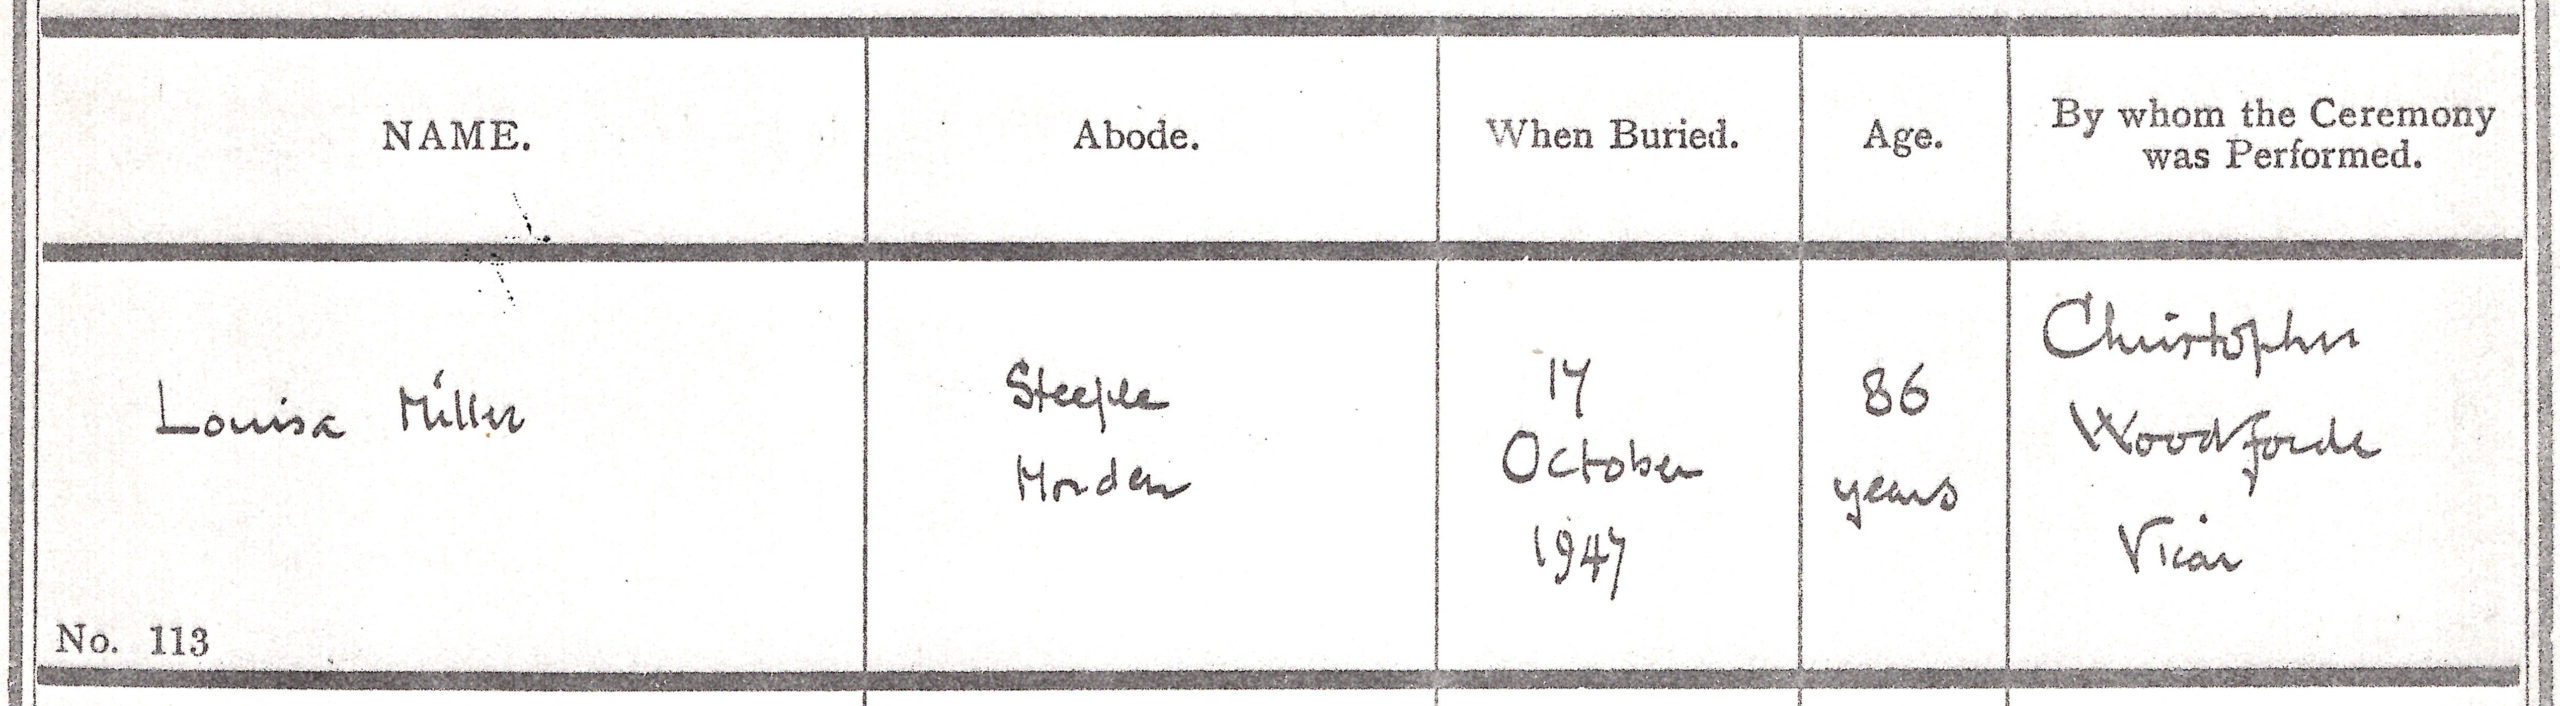 NAME.
Abode.
When Buried.
Age.
By whom the Ceremony
was Performed.
Louisa Miller
Steeple
Morden
17
October
1947
86
years
Christopher
Woodforde
Vicar
No. 113